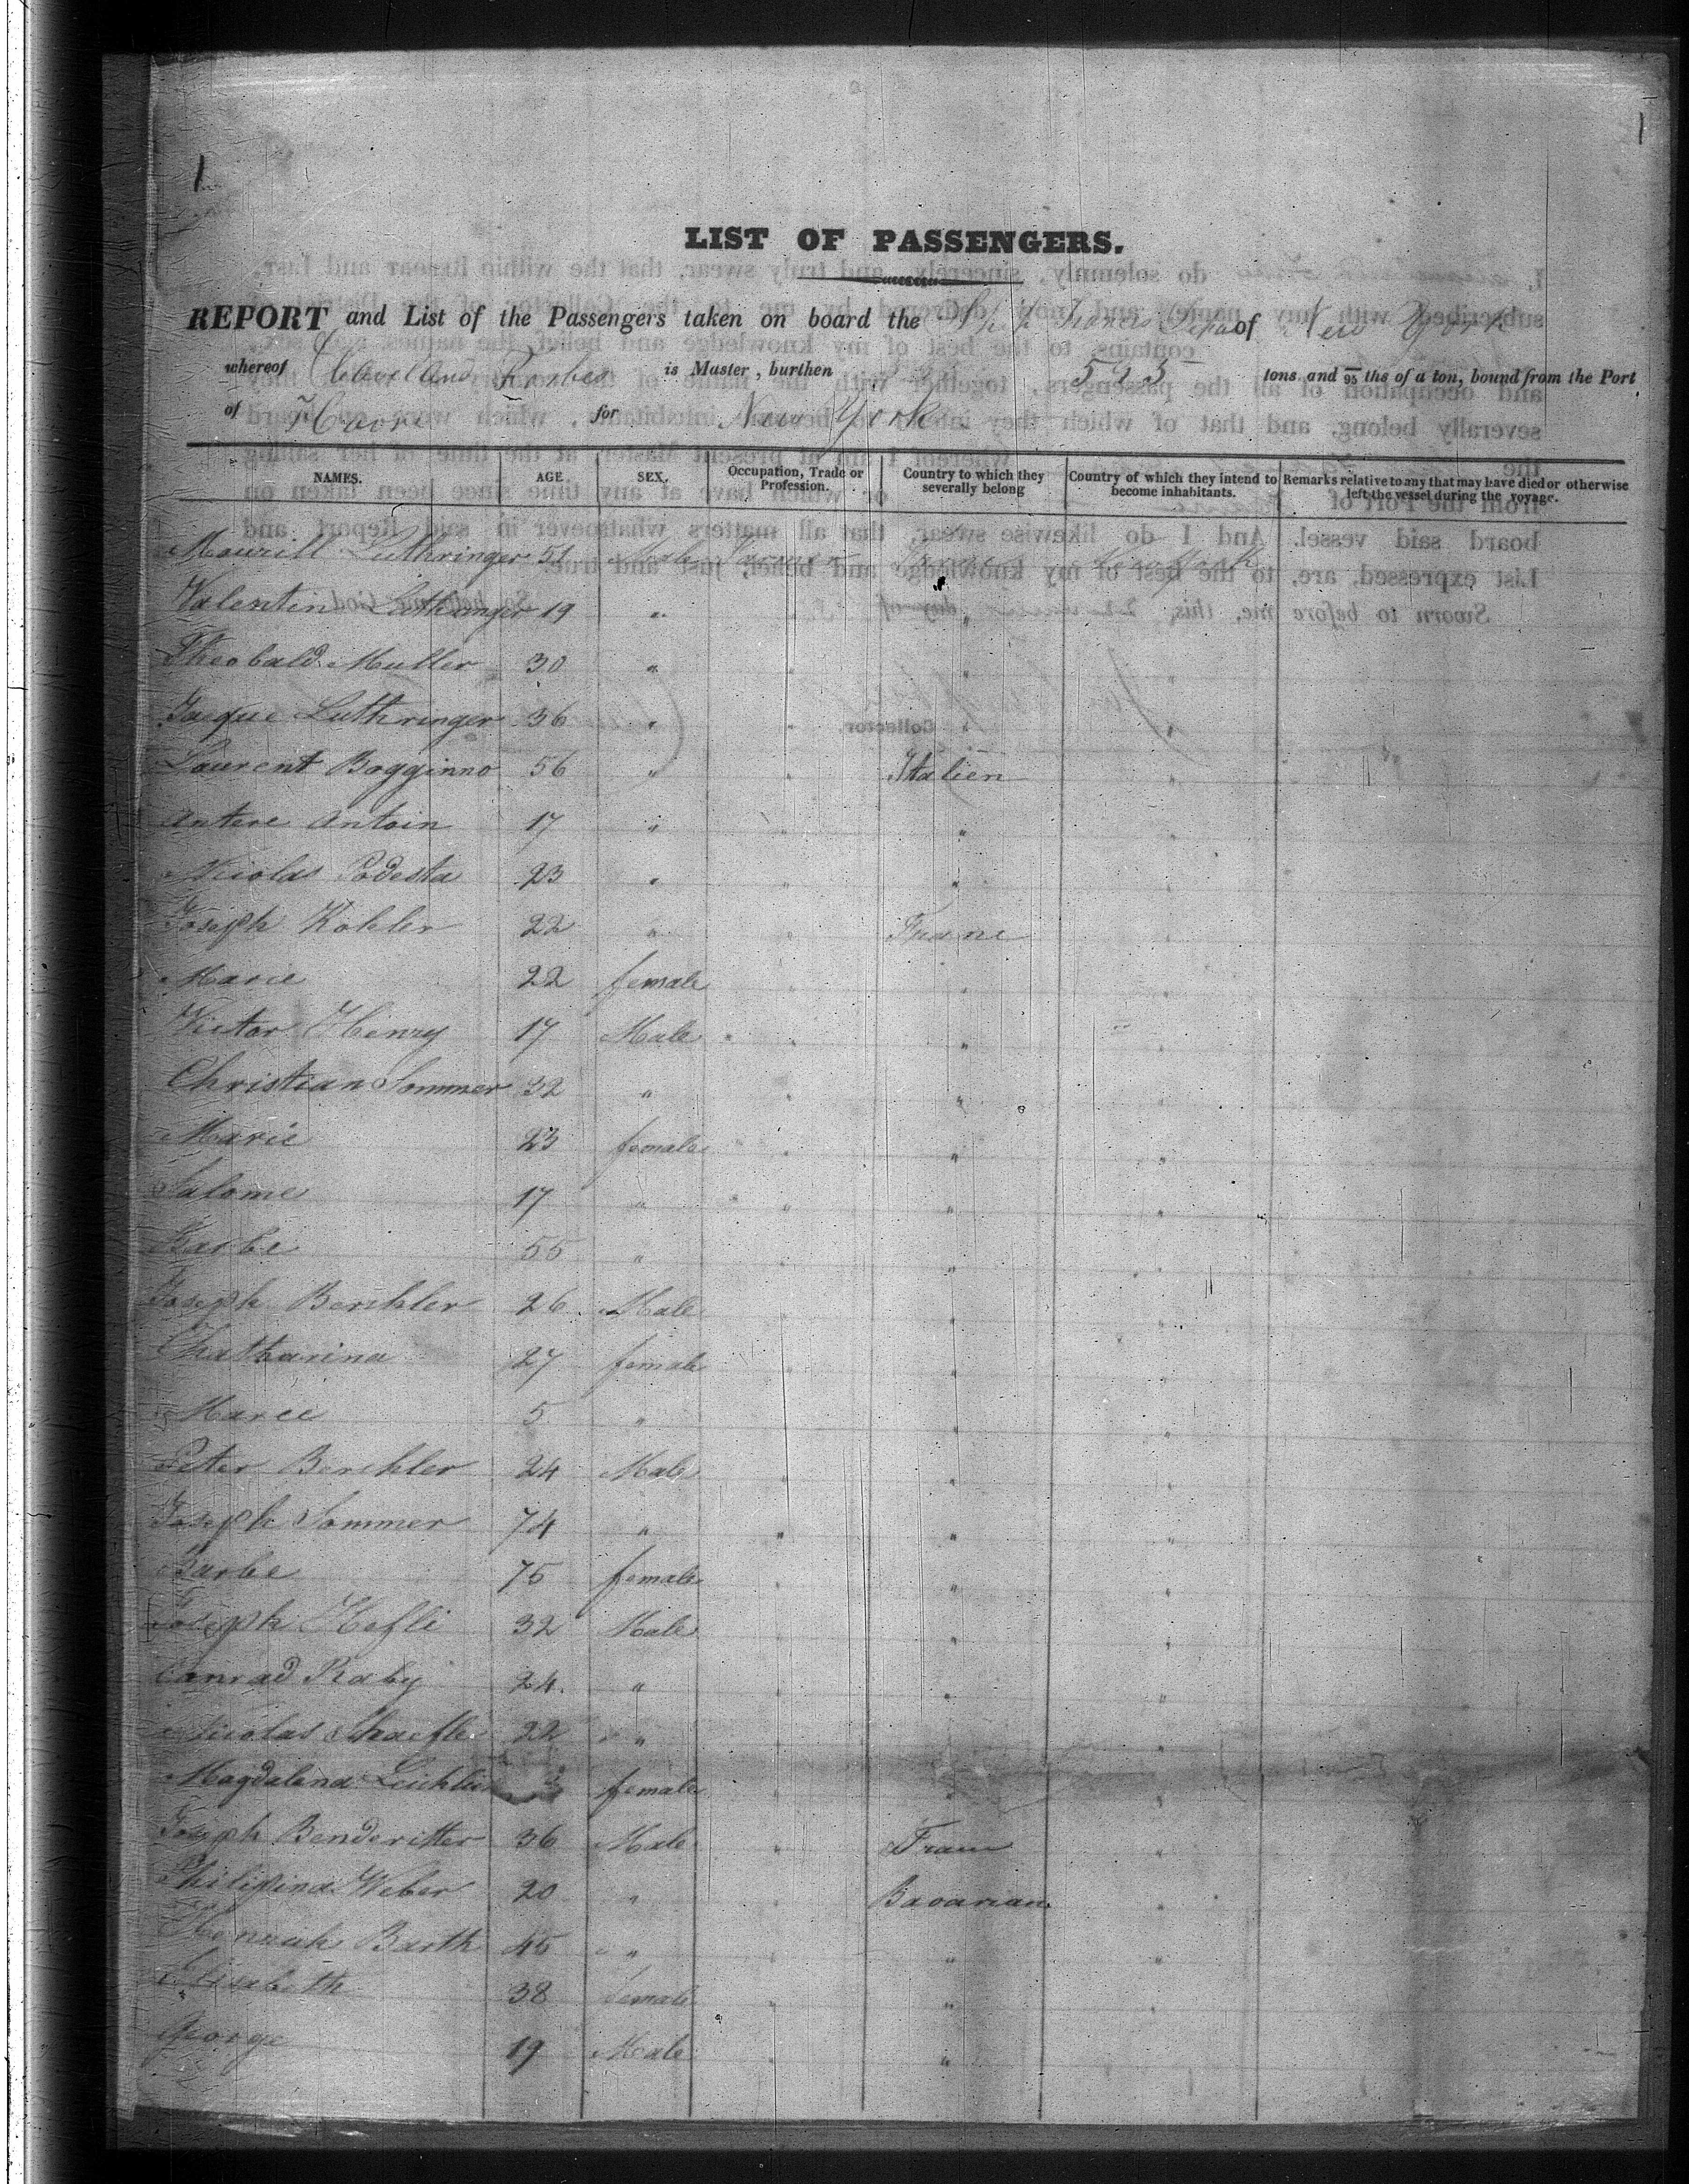 LIST OF PASSENGERS.
REPORT and List of the Passengers taken on board the Ship Francis Depau of New York
whereof Cleaveland Forbes is Master, burthen 595 tons and 95 ths of a ton, bound from the Port
of Havre for New York
NAMES. AGE SEX. Occupation, Trade or Profession. Country to which they severally belong Country of which they intend to become inhabitants. Remarks relative to any that may have died or otherwise left the vessel during the voyage.
Luthringer 51 Male Farmer France New York
Valentin Luthringer 19 " "
Theobald Muller 30 " " " "
Jacque Luthringer 36 " " " "
Laurent Bogginno 56 " " Italien "
Antere Antoin 17 " " " "
Nicolas Podesta 23 " " " "
Joseph Kohler 22 " " Franc "
Marie 22 female " "
Victor Henry 17 Male " " "
Christian Sommer 32 " " " "
Marie 23 female " " "
Salome 17 " " " "
Barbe 55 " " " "
Joseph Berchler 26 Male " "
Chatharina 27 female " " "
Marie 5 " " "
Peter Berchler 24 Male " " "
Joseph Sommer 74 " " " "
Barbe 75 female " " "
Joseph Hefli 32 Male " " "
Conrad Raby 24 " " " "
Nicolas 22 " " " "
Magdalena female " " "
Joseph Benderitter 36 Male " Franc "
Philipina Weber 20 " " Bavarian "
Barth 45 " " " "
Elisabeth 38 female " " "
George 19 Male " "